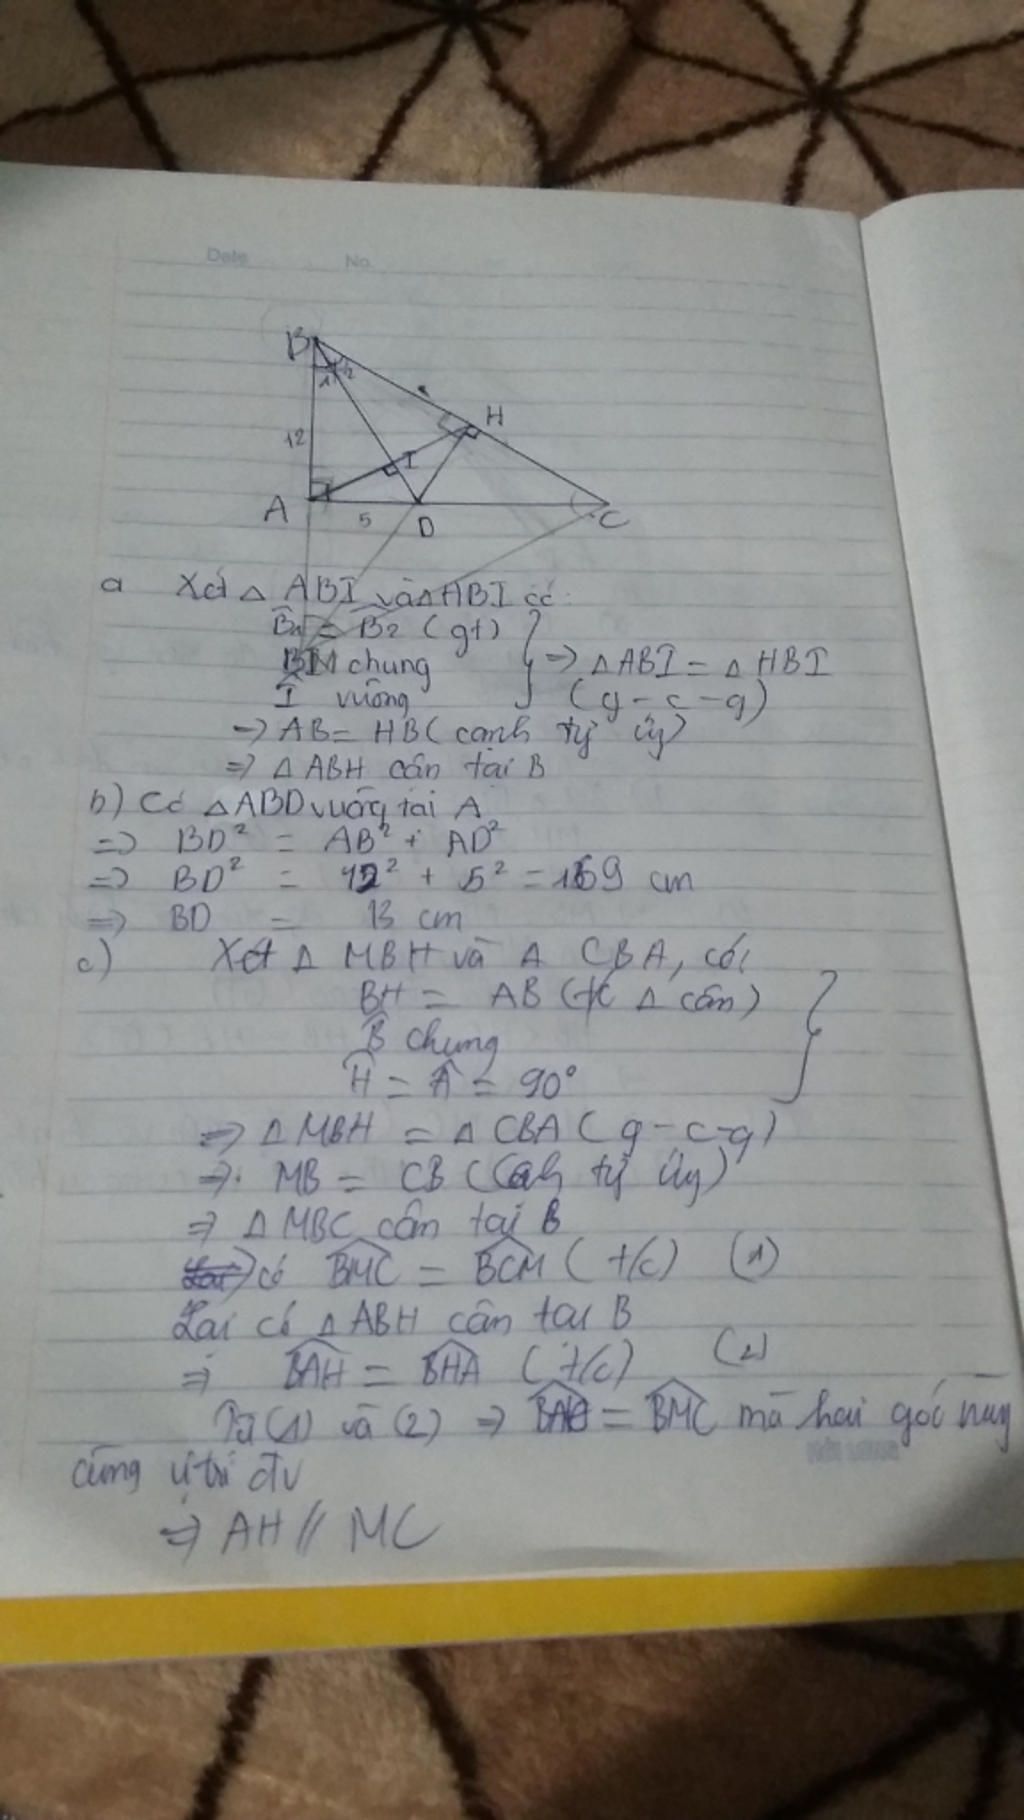 Date No.
B
1 2
H
12
I
A
5
D
C
a Xét △ ABI và △HBI có:
B̂1 = B̂2 (gt)
BI chung
Î vuông
=> △ABI = △HBI
(g-c-g)
=> AB = HB (cạnh tg ứg)
=> △ABH cân tại B
b) Có △ABD vuông tại A
=> BD² = AB² + AD²
=> BD² = 12² + 5² = 169 cm
=> BD = 13 cm
c) Xét △ MBH và △ CBA, có:
BH = AB (t/c △ cân)
B̂ chung
Ĥ = Â = 90°
=> △MBH = △CBA (g-c-g)
=> MB = CB (cạh tg ứg)
=> △MBC cân tại B
có BMC = BCM (t/c) (1)
Lại có △ABH cân tại B
=> BAH = BHA (t/c) (2)
Từ (1) và (2) => = BMC mà hai góc này
cùng vị trí đv
=> AH // MC